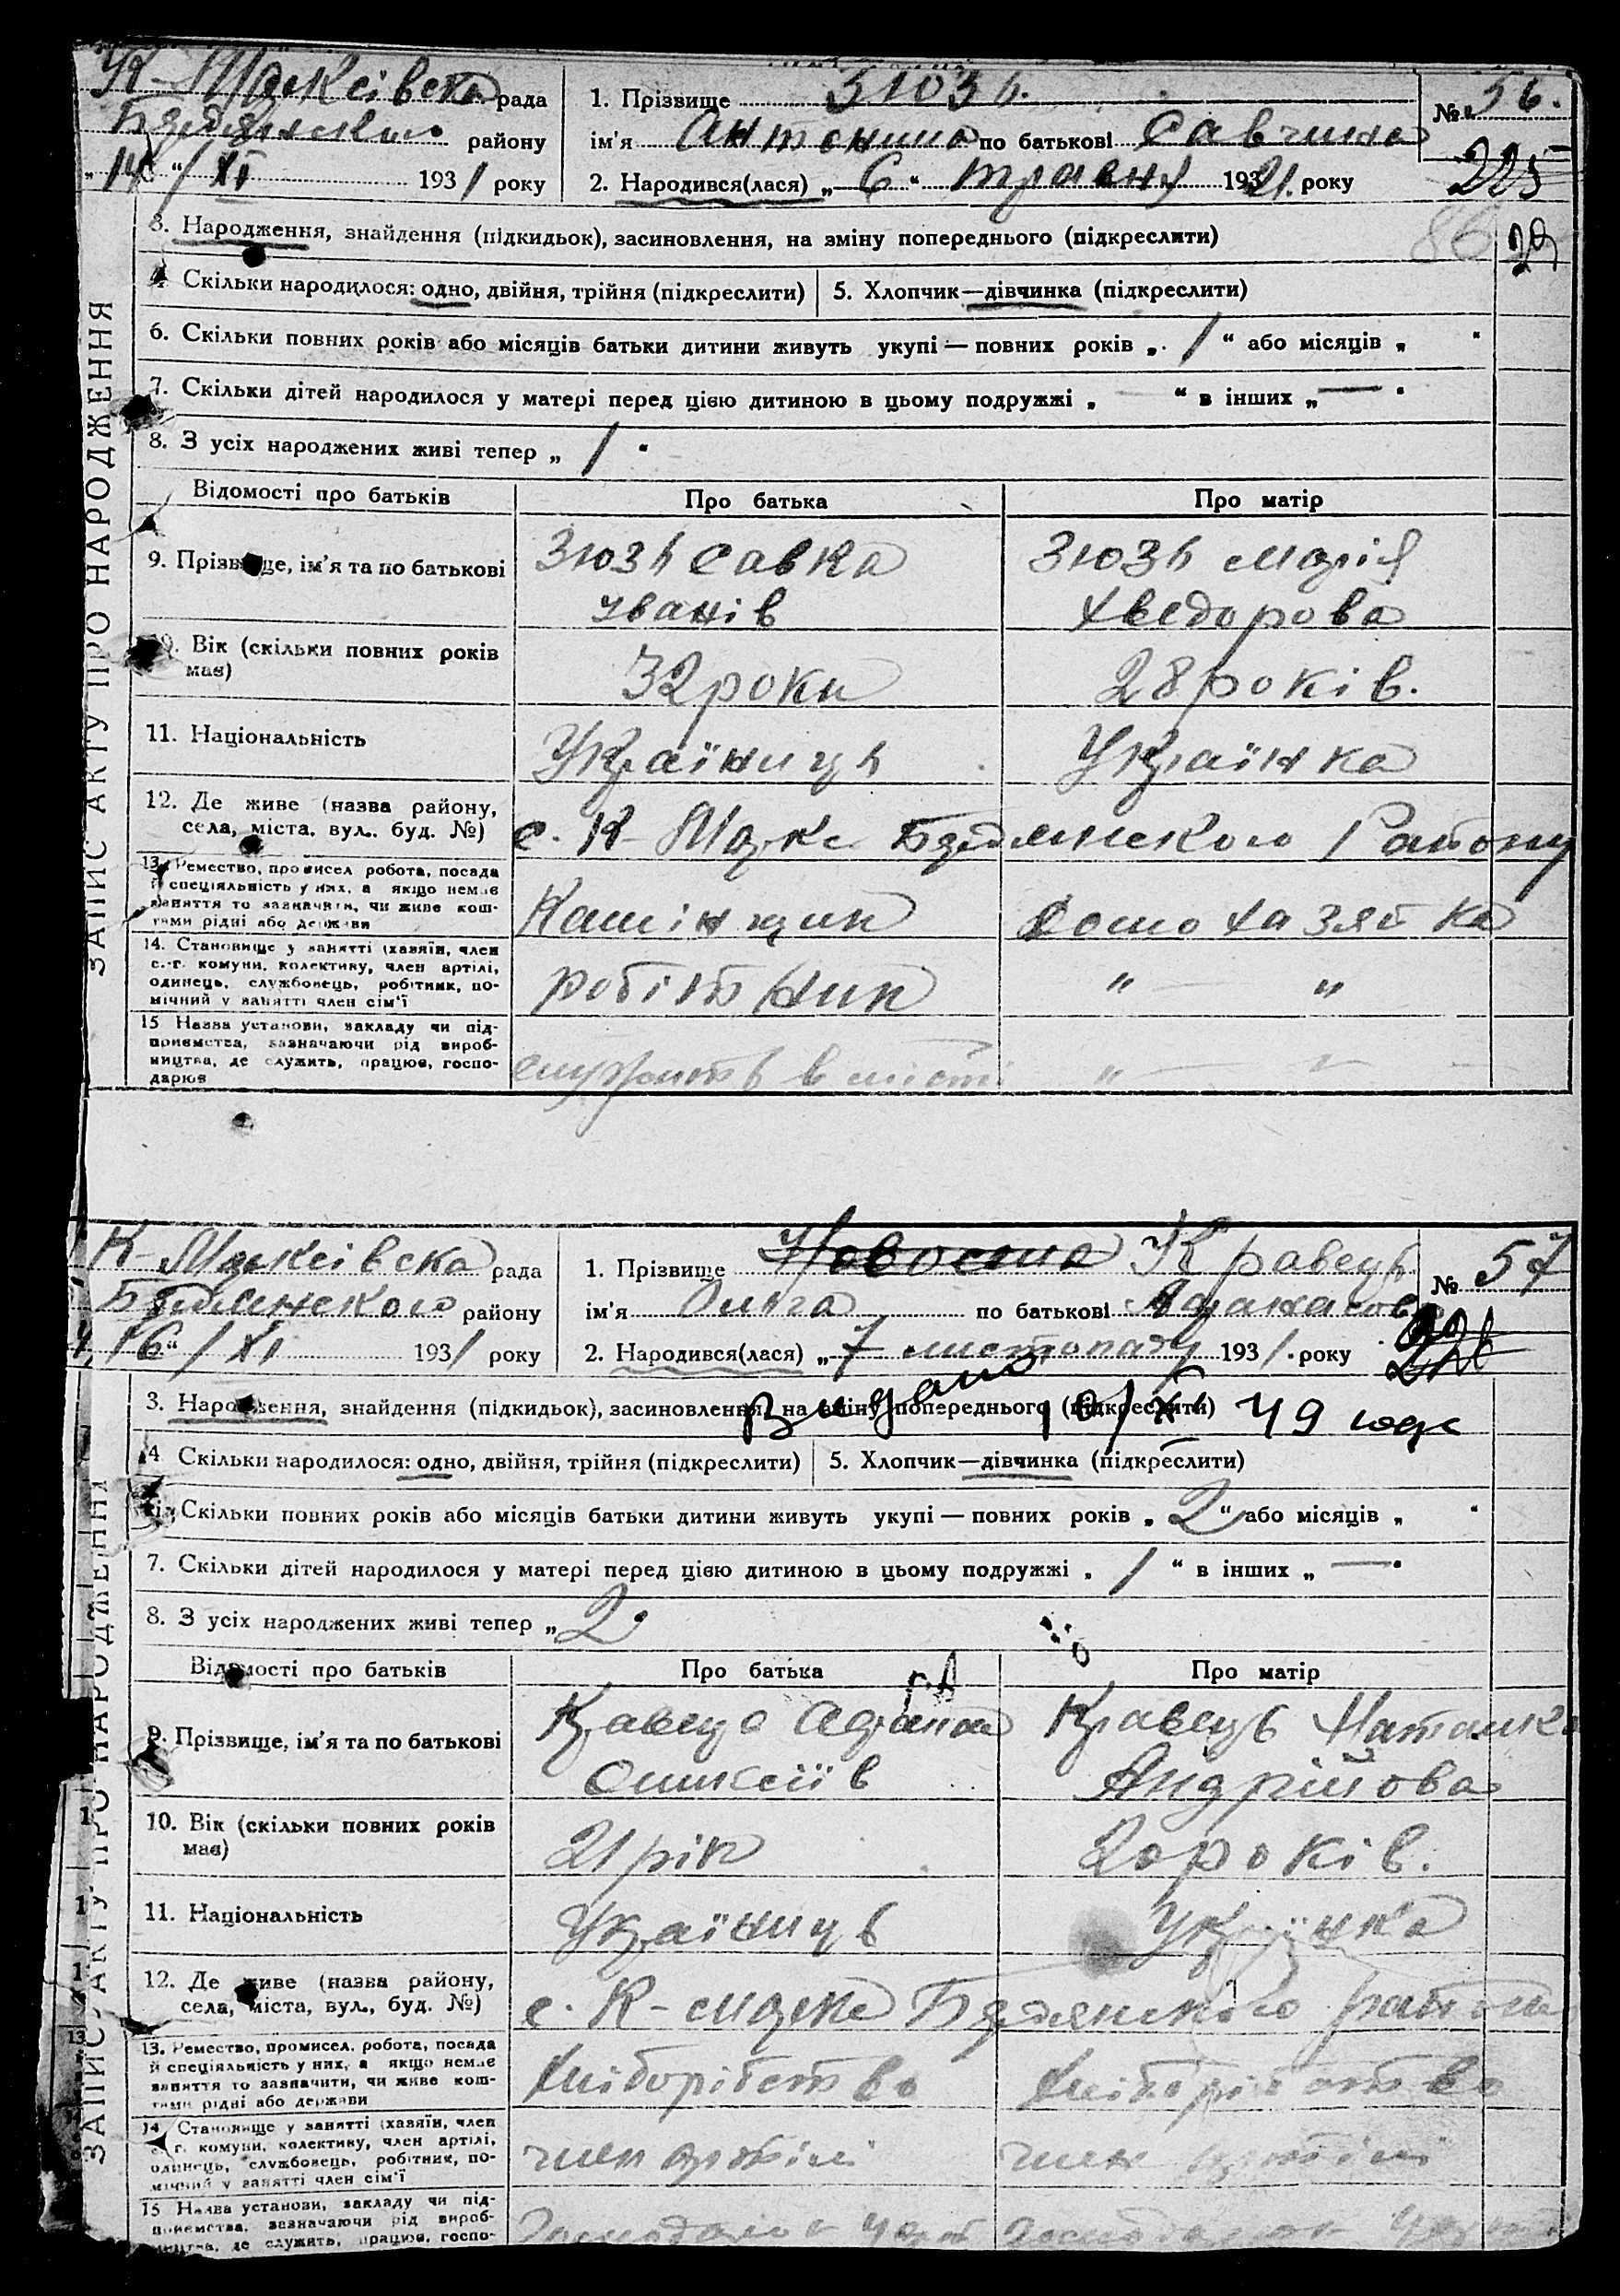 К-Марксівська рада
Бердянського району
"14" / XI 1931 року
1. Прізвище Зюзь.
ім'я Антонина по батькові Савчина
2. Народився(лася) „ 6 " травня 1931. року
№ 56.
225
86 29
ЗАПИС АКТУ ПРО НАРОДЖЕННЯ
3. Народження, знайдення (підкидьок), засиновлення, на зміну попереднього (підкреслити)
4 Скільки народилося: одно, двійня, трійня (підкреслити) 5. Хлопчик—дівчинка (підкреслити)
6. Скільки повних років або місяців батьки дитини живуть укупі — повних років „ 1 " або місяців „ "
7. Скільки дітей народилося у матері перед цією дитиною в цьому подружжі „ — " в інших „ — "
8. З усіх народжених живі тепер „ 1 "
Відомості про батьків Про батька Про матір
9. Прізвище, ім'я та по батькові Зюзь Савка Зюзь Марія
Іванів Хведорова
10. Вік (скільки повних років має) 32 роки 28 років.
11. Національність Українць Українка
12. Де живе (назва району,
села, міста, вул., буд. №) с. К-Маркс Бердянського Району
13. Ремество, промисел робота, посада
й спеціяльність у них, а якщо немає
заняття то зазначити, чи живе кош-
тами рідні або держави
Камінщик Домохазяйка
14. Становище у занятті (хазяїн, член
с.-г. комуни, колективу, член артілі,
одинець, службовець, робітник, по-
мічний у занятті член сім'ї
робітник " — "
15 Назва установи, закладу чи під-
приємства, зазначаючи рід вироб-
ництва, де служить, працює, госпо-
дарює
служить в місті " — "
К-Марксівська рада
Бердянського району
"16" / XI 1931 року
1. Прізвище Кравець
ім'я Ольга по батькові Афанасова
2. Народився(лася) „ 7 листопаду 1931. року
№ 57
226
ЗАПИС АКТУ ПРО НАРОДЖЕННЯ
3. Народження, знайдення (підкидьок), засиновлення, на зміну попереднього (підкреслити)
Видано 49 года
4 Скільки народилося: одно, двійня, трійня (підкреслити) 5. Хлопчик—дівчинка (підкреслити)
6. Скільки повних років або місяців батьки дитини живуть укупі — повних років „ 2 " або місяців „ "
7. Скільки дітей народилося у матері перед цією дитиною в цьому подружжі „ 1 " в інших „ — "
8. З усіх народжених живі тепер „ 2 "
Відомості про батьків Про батька Про матір
9. Прізвище, ім'я та по батькові Кравець Афанас Кравець Наталка
Оликсіїв Андрійова
10. Вік (скільки повних років має) 21 рік 20 років.
11. Національність Українць Українка
12. Де живе (назва району,
села, міста, вул., буд. №) с. К-маркс Бердянського району
13. Ремество, промисел, робота, посада
й спеціяльність у них, а якщо немає
заняття то зазначити, чи живе кош-
тами рідні або держави
Хліборібство Хліборібство
14 Становище у занятті (хазяїн, член
с.-г. комуни, колективу, член артілі,
одинець, службовець, робітник, по-
мічний у занятті член сім'ї
член артілі член артілі
15 Назва установи, закладу чи під-
приємства, зазначаючи рід вироб-
ництва, де служить, працює, госпо-